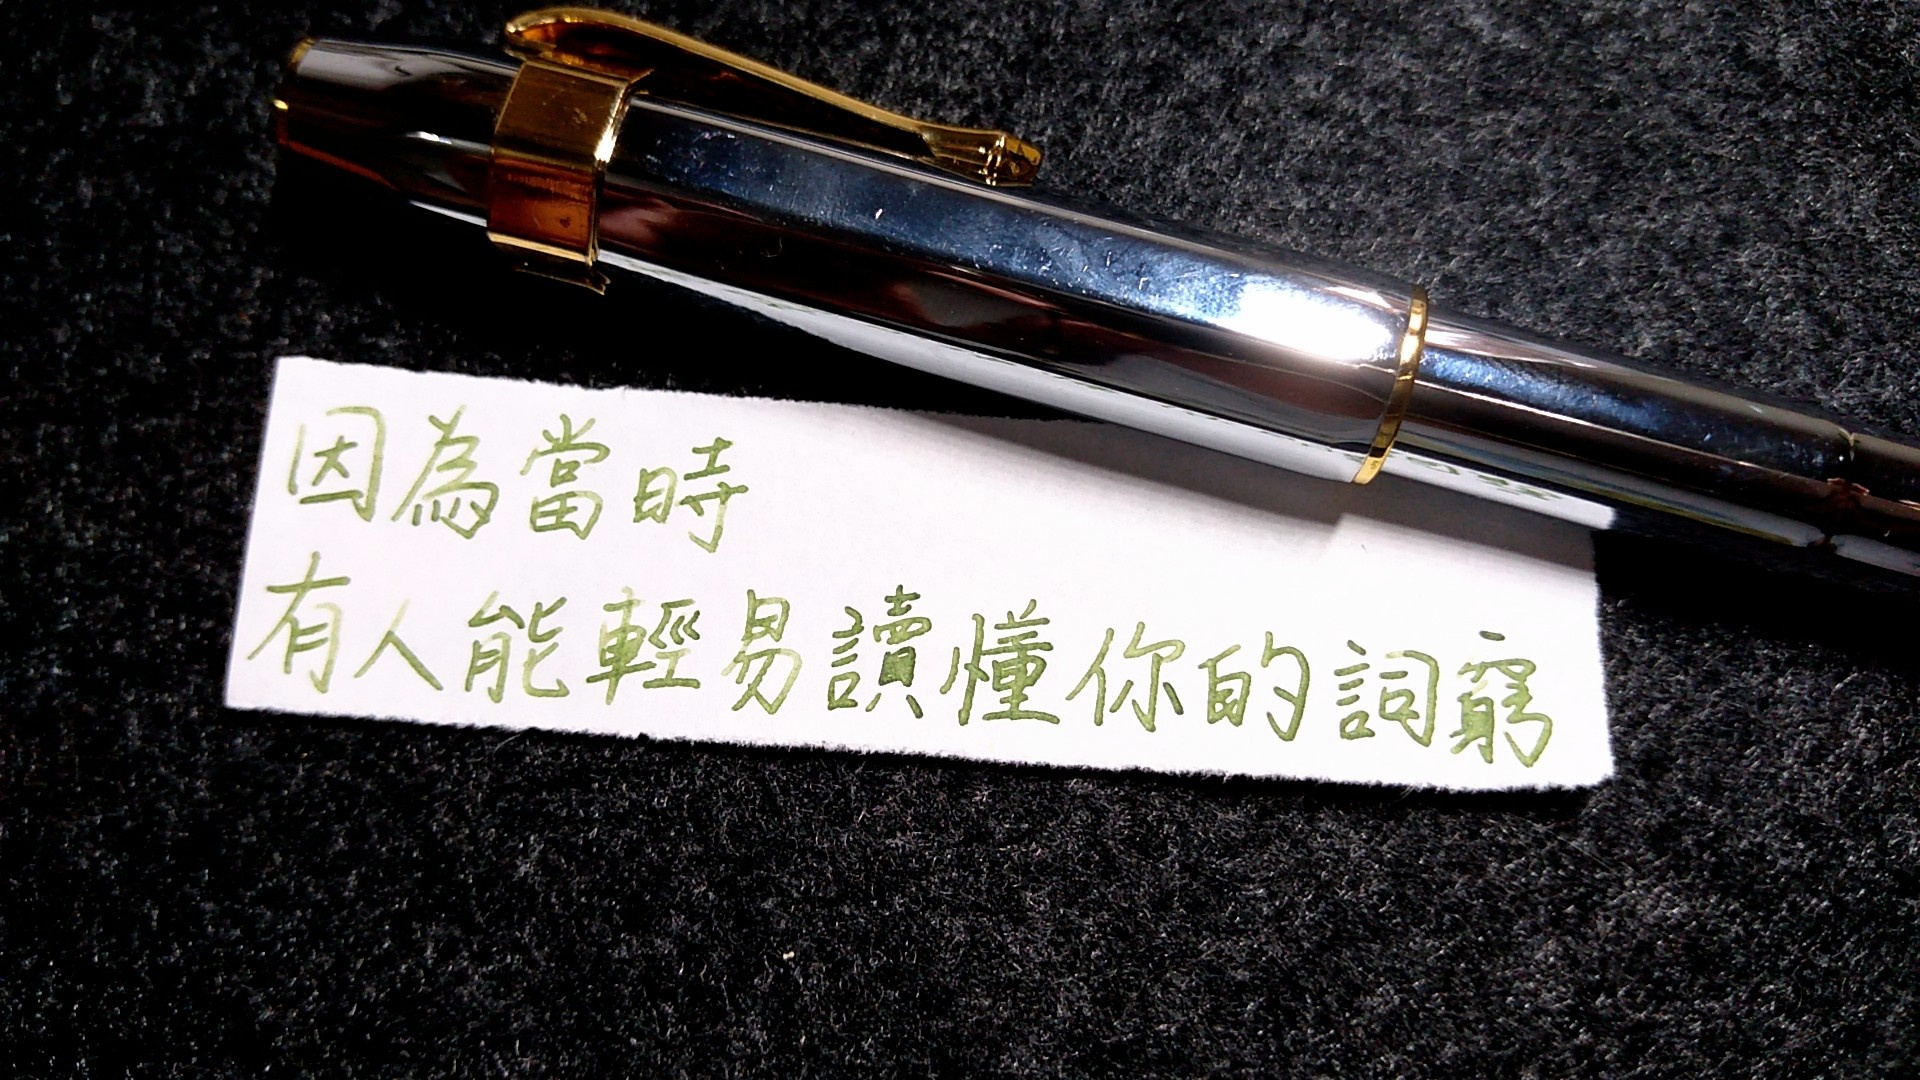 因為當時
有人能輕易讀懂你的詞窮